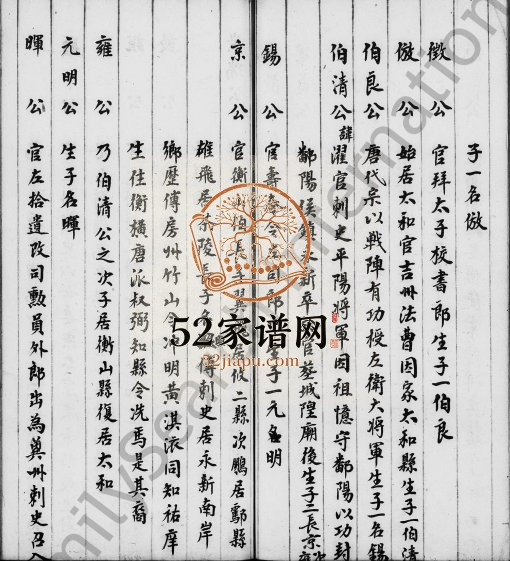 子一名倣
徵公 官拜太子校書郎生子一伯良
倣公 始居太和官吉州法曹因家太和縣生子一伯清
伯良公 唐代宗以戰陣有功授左衛大將軍生子一名錫
伯清公 諱濯官刺史平陽將軍因祖憶守鄱陽以功封
鄱陽侯鎮永新卒 官墓城隍廟後生子二長京次雍
錫公 官壽 令 司郎 生子一元名明
京公 官衡山伯長子翼 居 攸二縣次鵬居酃縣
雄飛居茶陵長子 傳刺史居永新南岸
鄉歷傳房州竹山令冲明黄淇依同知祐庠
生住衡横唐派权弼知縣令冼焉是其裔
雍公 乃伯清公之次子居衡山縣復居太和
元明公 生子名暉
暉公 官左拾遺改司勲員外郎出為冀州刺史召入
52家谱网
52jiapu.com
FamilySearch International